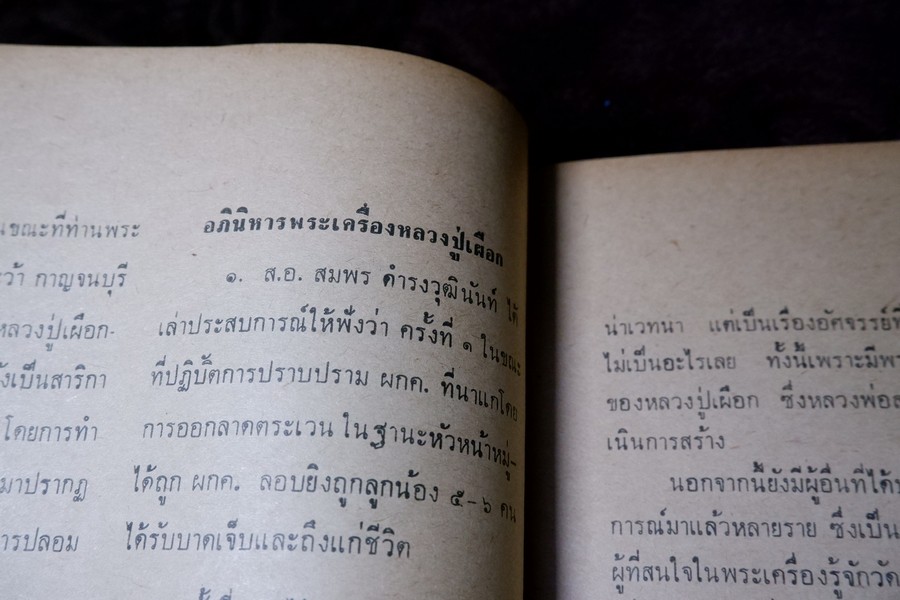 นขณะที่ท่านพระ
กาญจนบุรี
หลวงปู่เผือก-
ังเป็นสาริกา
โดยการทำ
มาปรากฏ
ารปลอม
อภินิหารพระเครื่องหลวงปู่เผือก
๑. ส.อ. สมพร ดำรงวุฒินันท์ ได้
เล่าประสบการณ์ให้ฟังว่า ครั้งที่ ๑ ในขณะ
ที่ปฏิบัติการปราบปราม ผกค. ที่นาแกโดย
การออกลาดตระเวน ในฐานะหัวหน้าหมู่-
ได้ถูก ผกค. ลอบยิงถูกลูกน้อง ๕-๖ คน
ได้รับบาดเจ็บและถึงแก่ชีวิต
น่าเวทนา แต่เป็นเรื่องอัศจรรย์ที่
ไม่เป็นอะไรเลย ทั้งนี้เพราะมีพร
ของหลวงปู่เผือก ซึ่งหลวงพ่อส
เนินการสร้าง
นอกจากนี้ยังมีผู้อื่นที่ได้
การณ์มาแล้วหลายราย ซึ่งเป็น
ผู้ที่สนใจในพระเครื่องรู้จักวัด